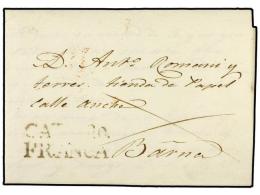 D. Antº. Romani y
torres. tienda de Papel
Calle ancha
CAT
FRANCA Barna